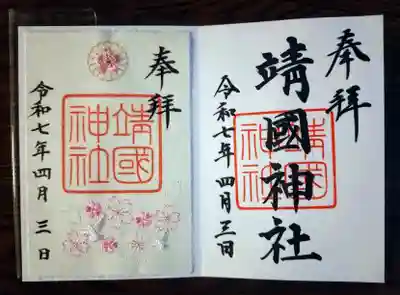 奉拝
靖國神社
令和七年四月三日
奉拝
靖國神社
靖國神社
令和七年四月三日